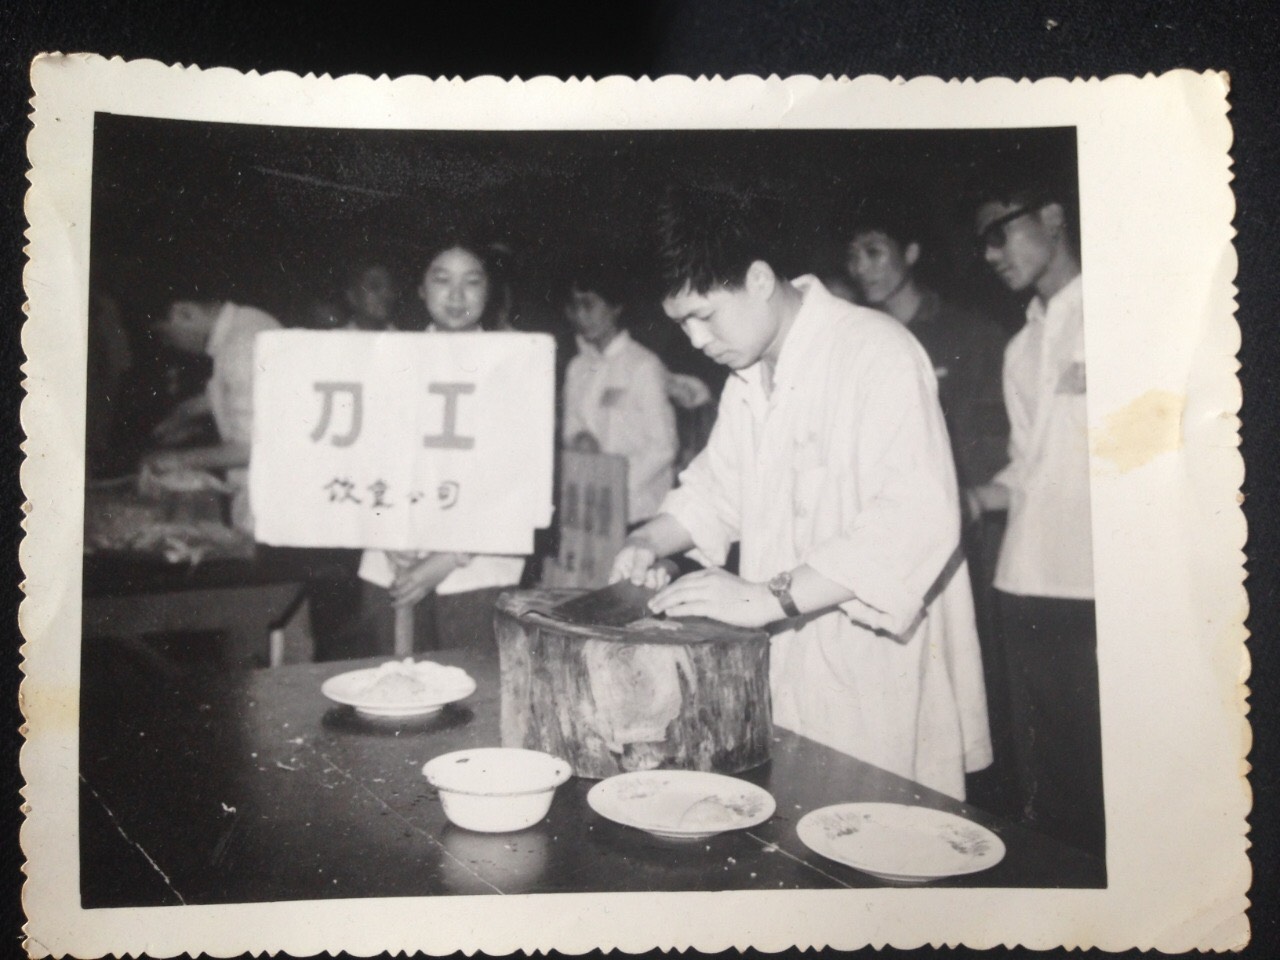 刀工
饮食公司